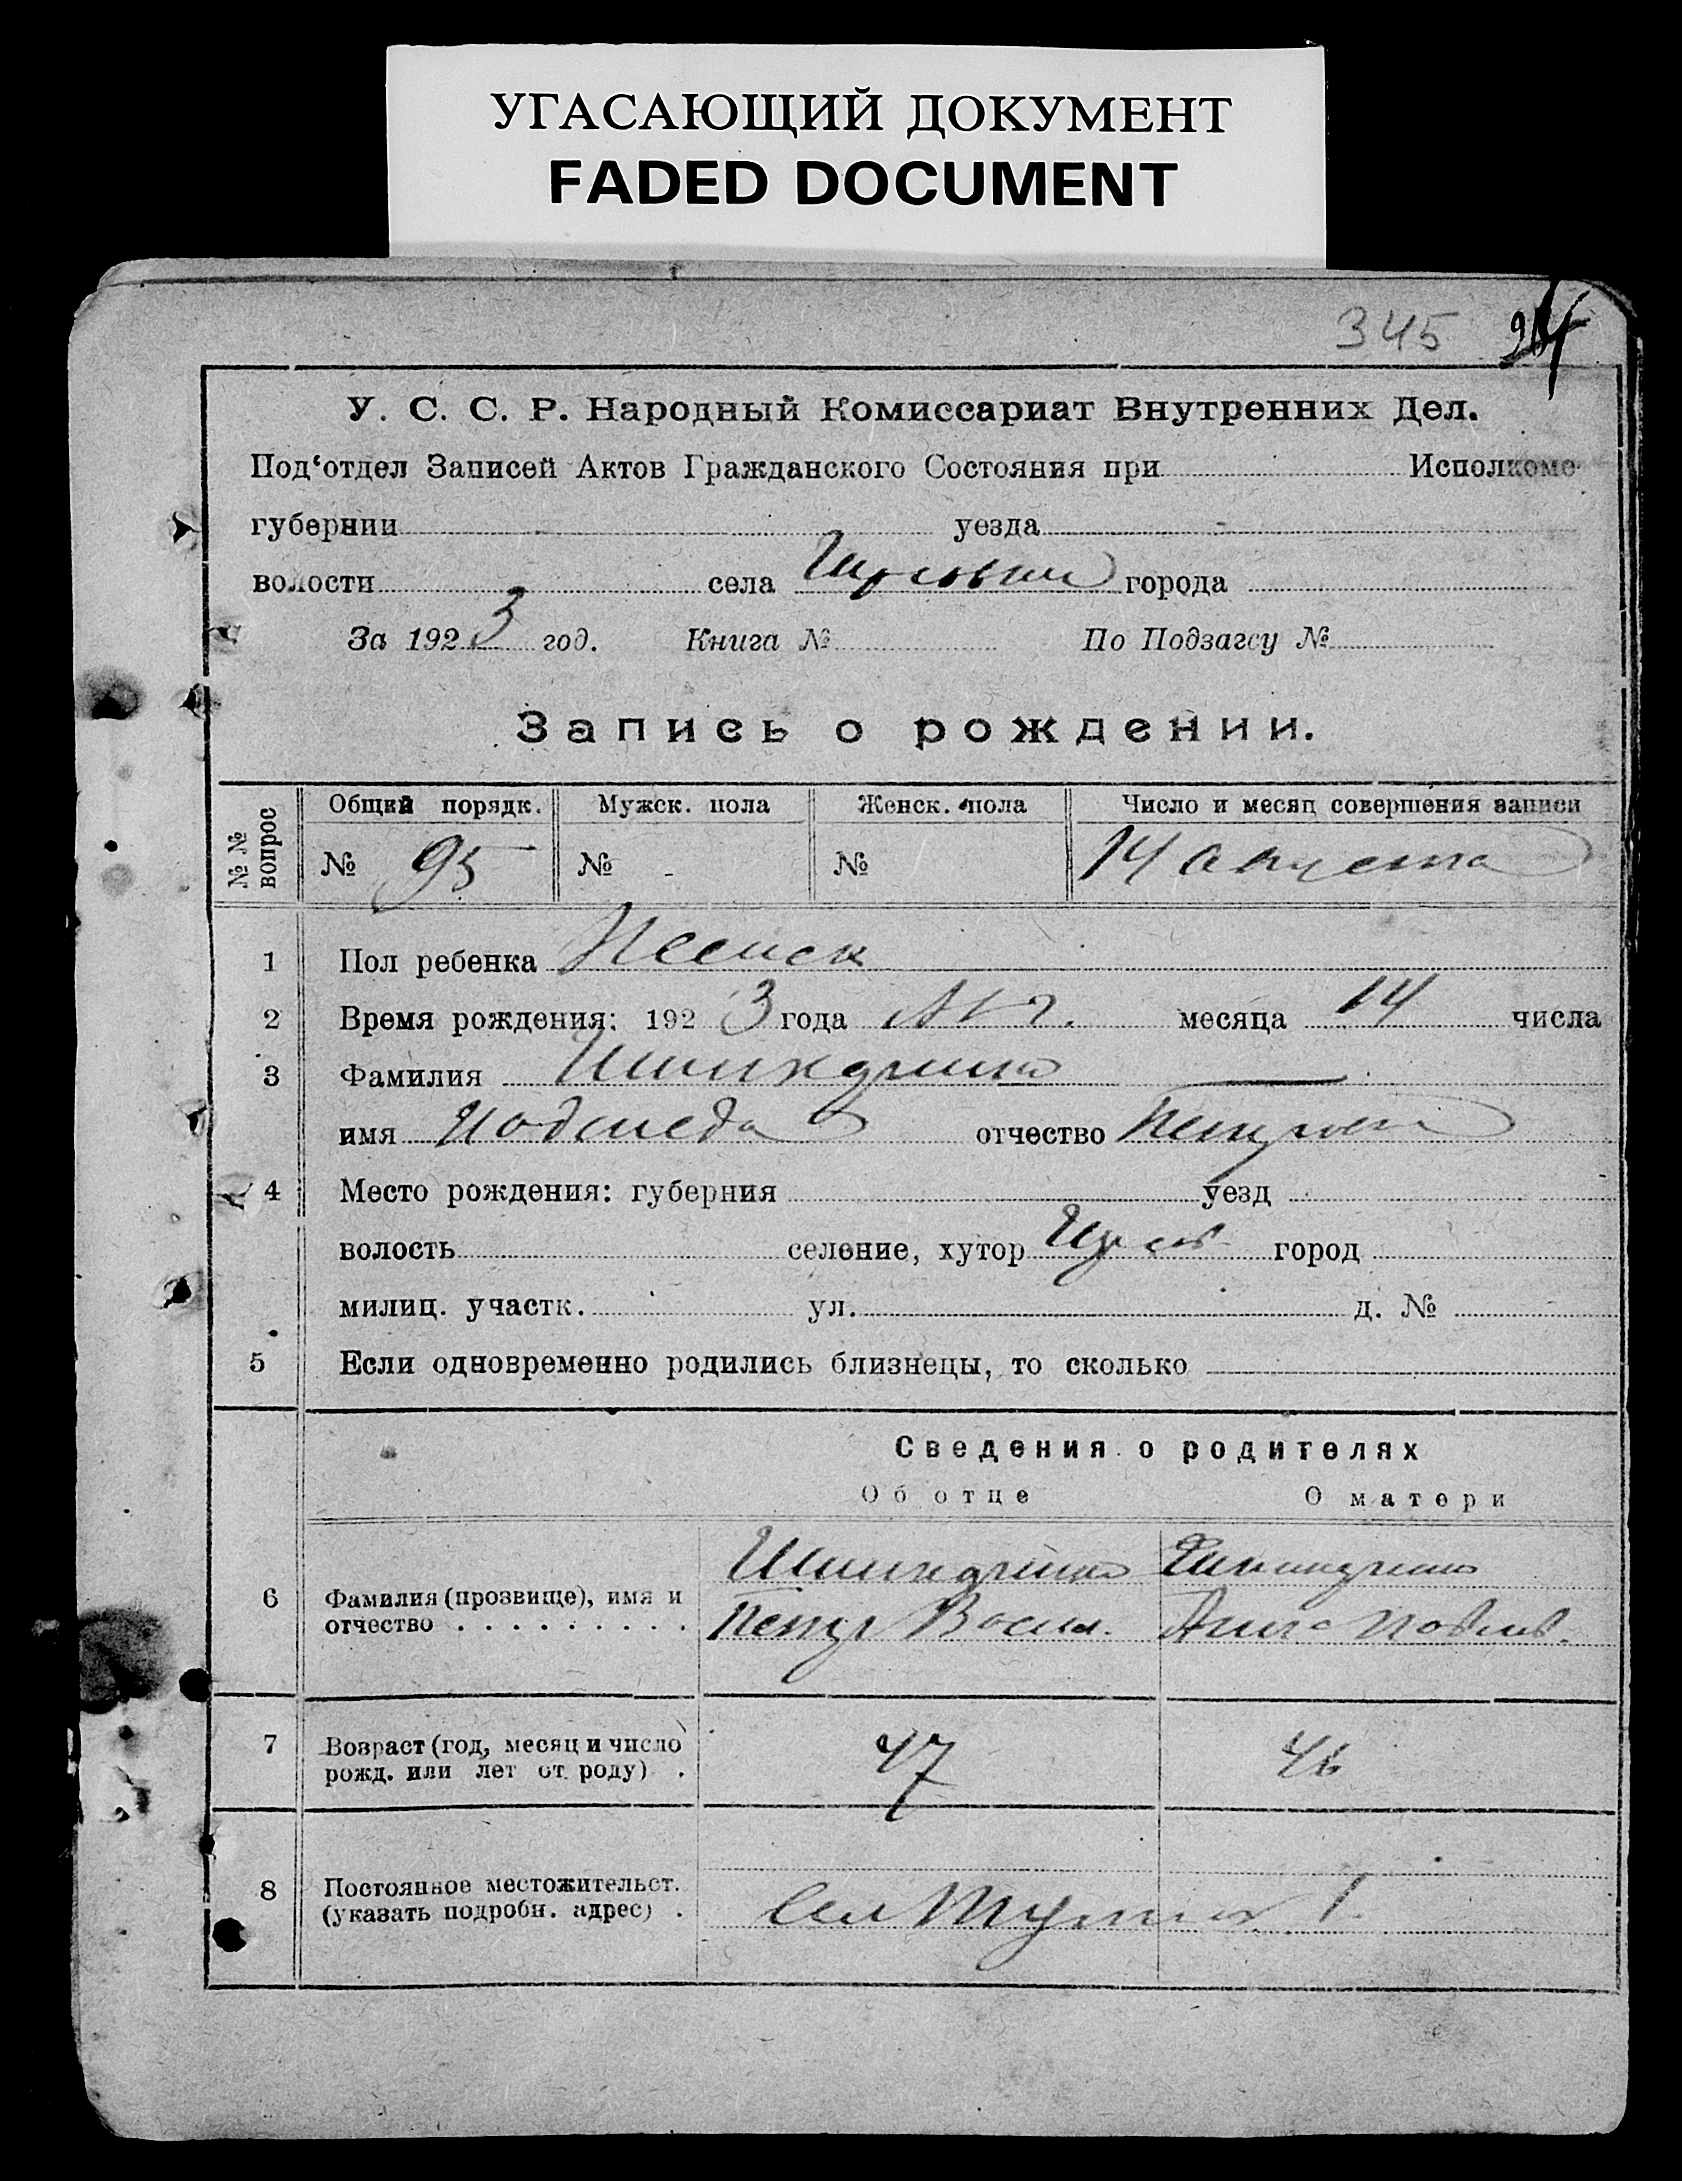 УГАСАЮЩИЙ ДОКУМЕНТ
FADED DOCUMENT
345
У. С. С. Р. Народный Комиссариат Внутренних Дел.
Под‘отдел Записей Актов Гражданского Состояния при Исполкоме
губернии уезда
волости села города
За 1923 год. Книга № По Подзагсу №
Запись о рождении.
№ № вопрос Общий порядк. Мужск. пола Женск. пола Число и месяц совершения записи
№ 95 № - № 14 августа
1 Пол ребенка Женск
2 Время рождения: 1923 года Авг. месяца 14 числа
3 Фамилия
имя отчество
4 Место рождения: губерния уезд
волость селение, хутор город
милиц. участк. ул. д. №
5 Если одновременно родились близнецы, то сколько
Сведения о родителях
Об отце О матери
6 Фамилия (прозвище), имя и отчество Петр Васил. Анна Павлов.
7 Возраст (год, месяц и число рожд. или лет от роду) 47 46
8 Постоянное местожительст. (указать подробн. адрес)